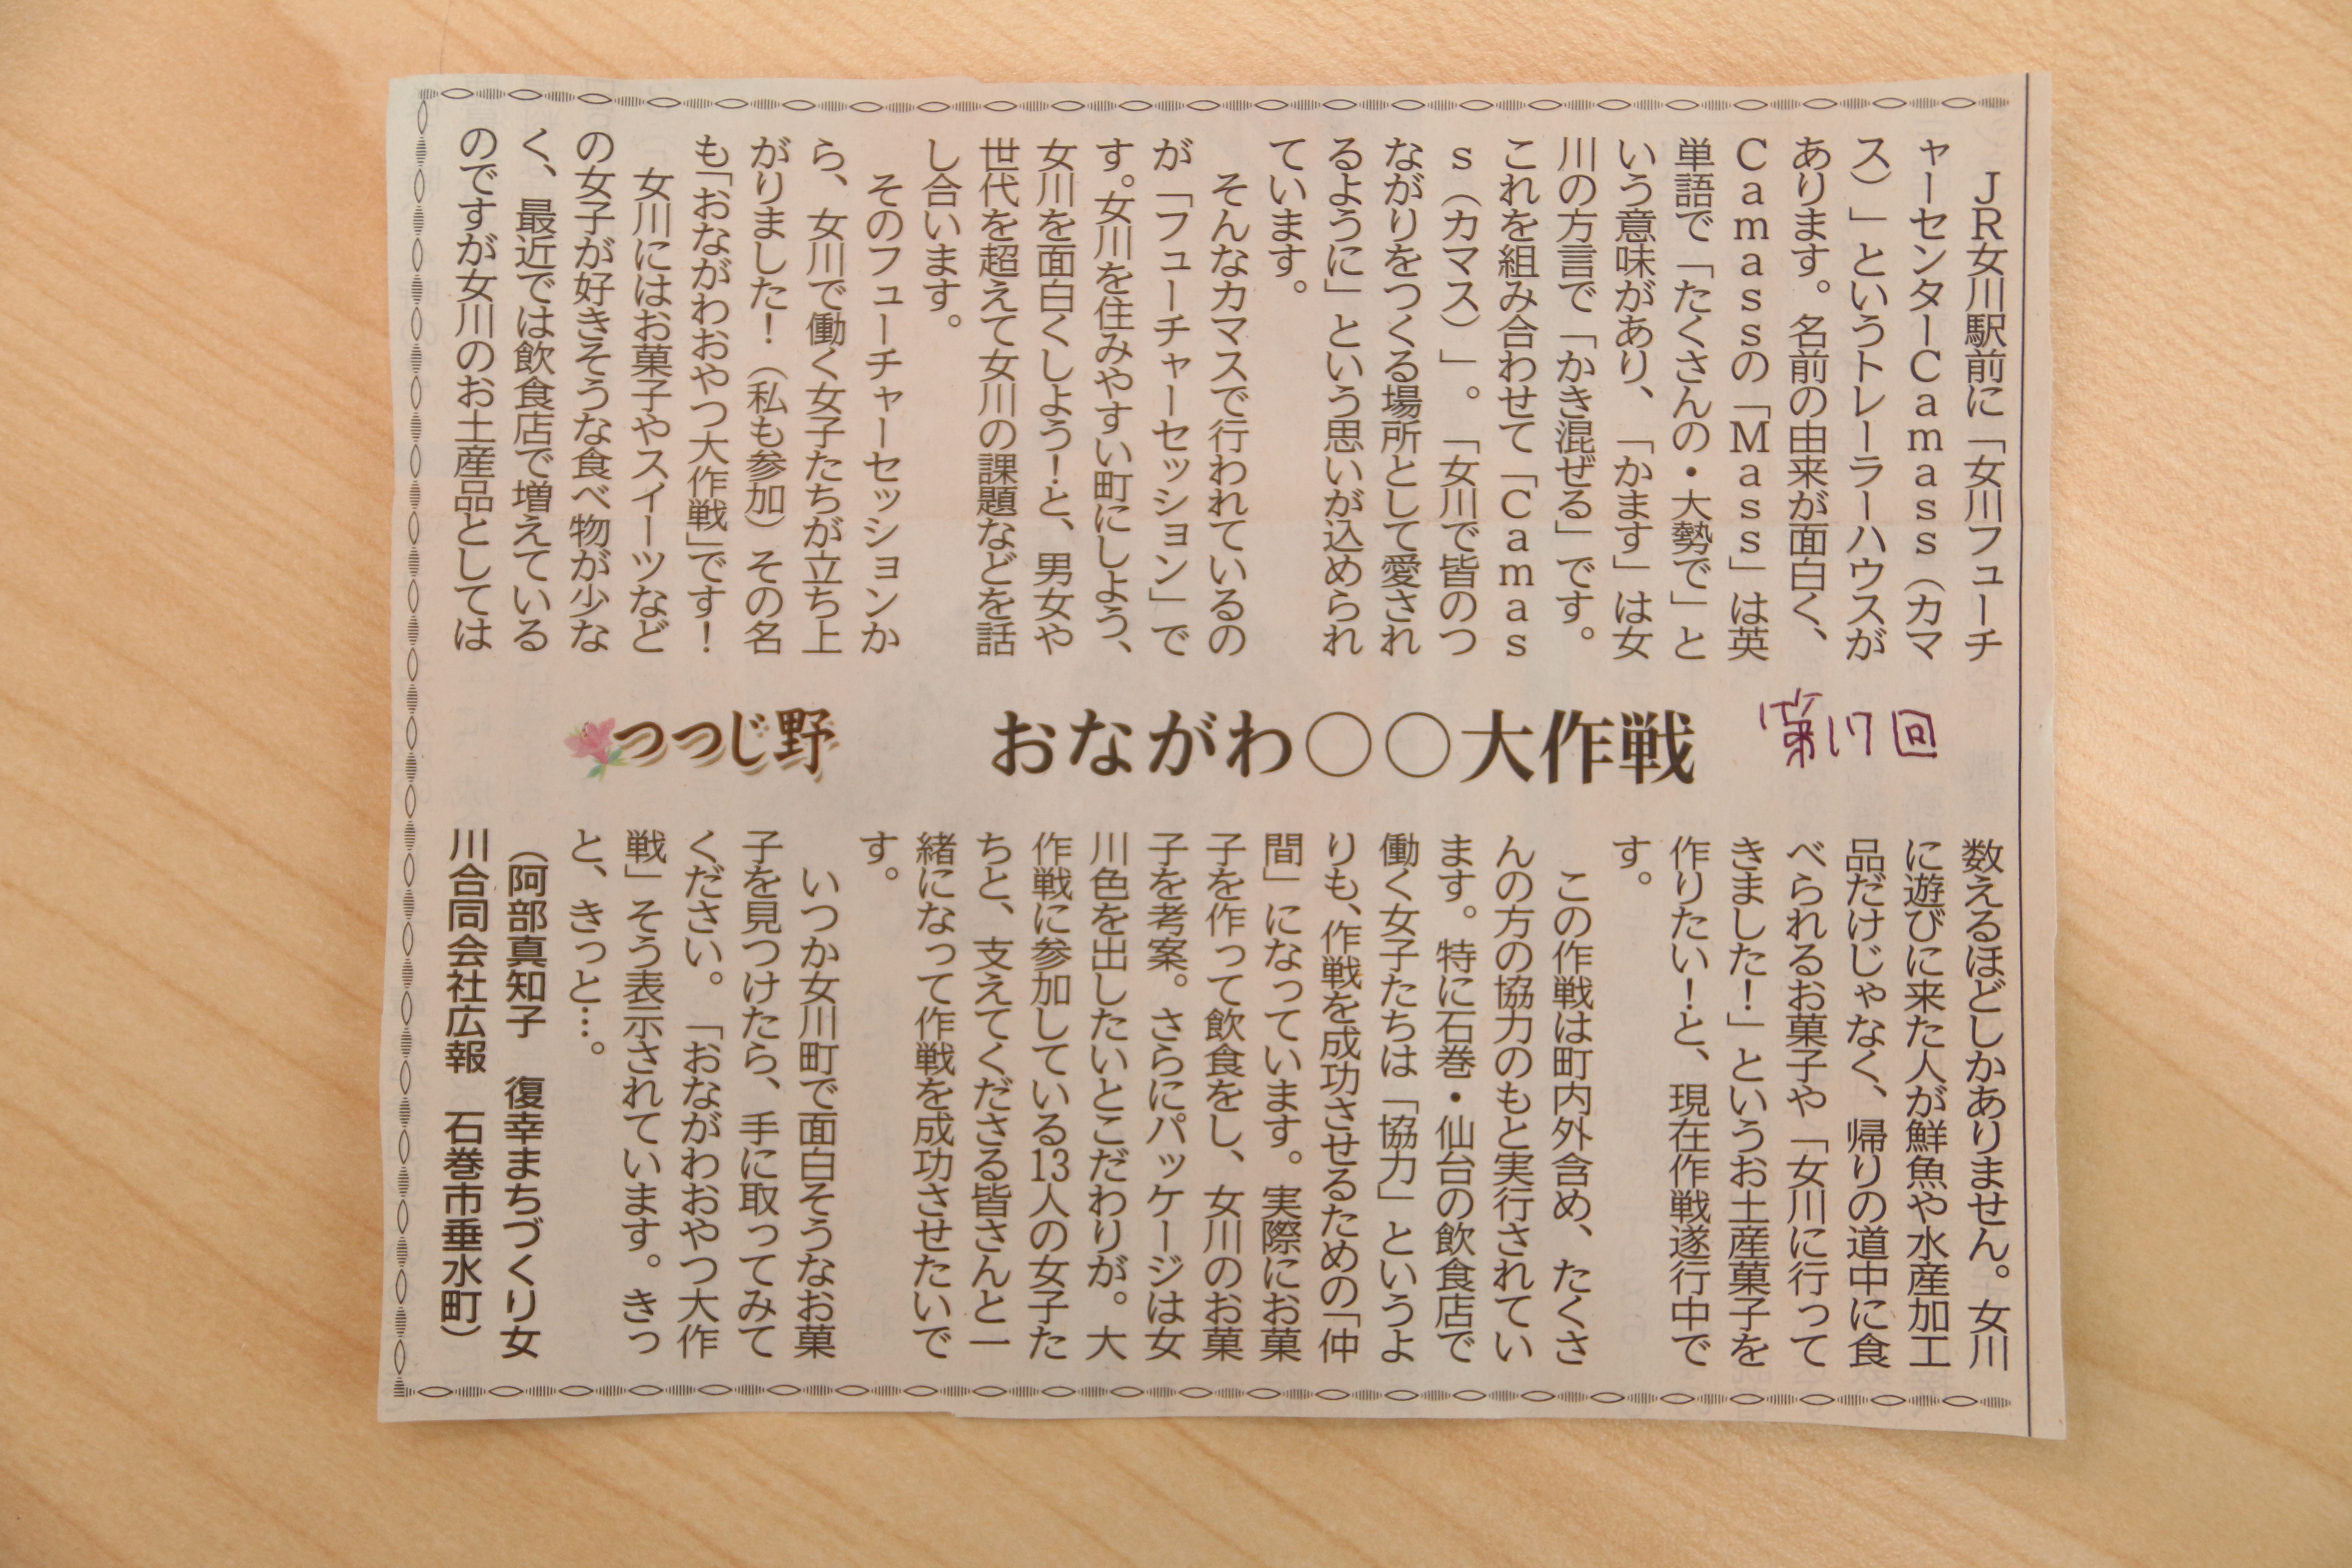 第17回
おながわ○○大作戦
つつじ野
ＪＲ女川駅前に「女川フューチ
ャーセンターＣａｍａｓｓ（カマ
ス）」というトレーラーハウスが
あります。名前の由来が面白く、
Ｃａｍａｓｓの「Ｍａｓｓ」は英
単語で「たくさんの・大勢で」と
いう意味があり、「かます」は女
川の方言で「かき混ぜる」です。
これを組み合わせて「Ｃａｍａｓ
ｓ（カマス）」。「女川で皆のつ
ながりをつくる場所として愛され
るように」という思いが込められ
ています。
そんなカマスで行われているの
が「フューチャーセッション」で
す。女川を住みやすい町にしよう、
女川を面白くしよう！と、男女や
世代を超えて女川の課題などを話
し合います。
そのフューチャーセッションか
ら、女川で働く女子たちが立ち上
がりました！（私も参加）その名
も「おながわおやつ大作戦」です！
女川にはお菓子やスイーツなど
の女子が好きそうな食べ物が少な
く、最近では飲食店で増えている
のですが女川のお土産品としては
数えるほどしかありません。女川
に遊びに来た人が鮮魚や水産加工
品だけじゃなく、帰りの道中に食
べられるお菓子や「女川に行って
きました！」というお土産菓子を
作りたい！と、現在作戦遂行中で
す。
この作戦は町内外含め、たくさ
んの方の協力のもと実行されてい
ます。特に石巻・仙台の飲食店で
働く女子たちは「協力」というよ
りも、作戦を成功させるための「仲
間」になっています。実際にお菓
子を作って飲食をし、女川のお菓
子を考案。さらにパッケージは女
川色を出したいとこだわりが。大
作戦に参加している13人の女子た
ちと、支えてくださる皆さんと一
緒になって作戦を成功させたいで
す。
いつか女川町で面白そうなお菓
子を見つけたら、手に取ってみて
ください。「おながわおやつ大作
戦」そう表示されています。きっ
と、きっと…。
（阿部真知子　復幸まちづくり女
川合同会社広報　石巻市垂水町）